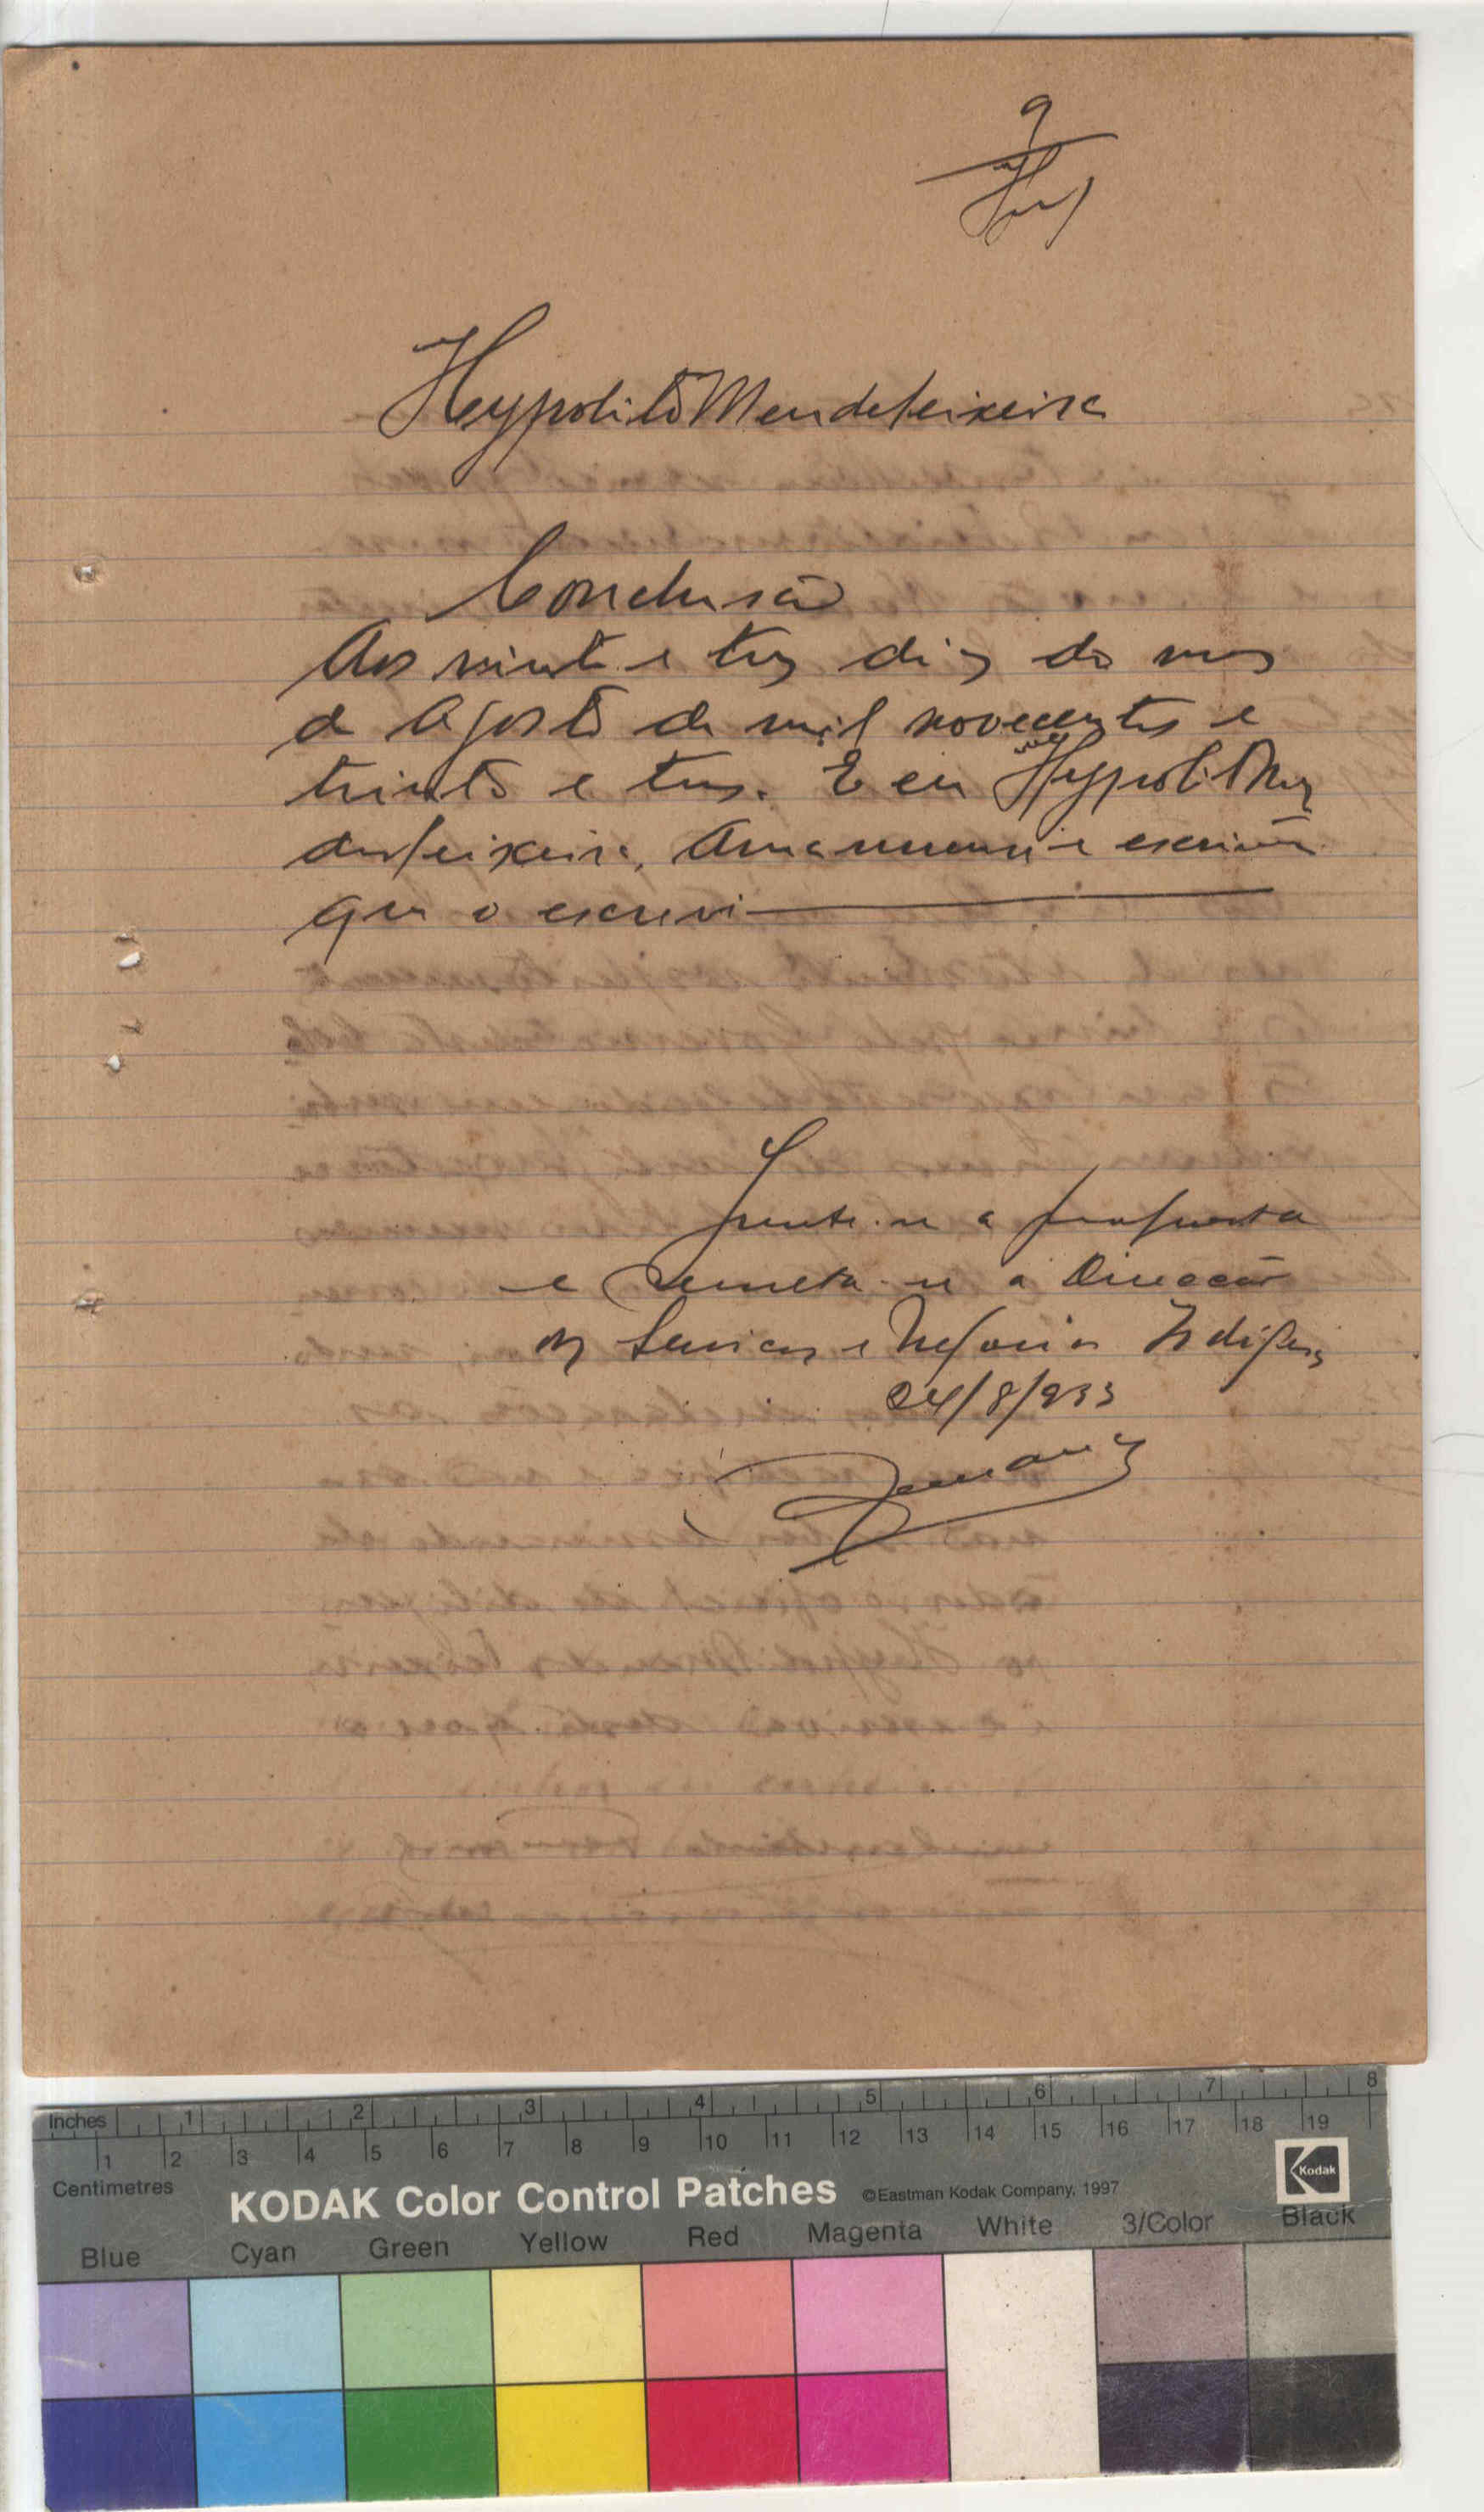 9
Hypolito Mendes Teixeira
Conclusão
Aos vinte e tres dias do mes
de Agosto de mil novecentos e
trinta e tres. E eu Hypolito Men
des Teixeira, Amanuense e escrivão
que o escrevi
Junte-se a proposta
e remeta-se a Direcção
dos Serviços e Negocios Indigenas
24/8/933
Inches 1 2 3 4 5 6 7 8
Centimetres 1 2 3 4 5 6 7 8 9 10 11 12 13 14 15 16 17 18 19
KODAK Color Control Patches ©Eastman Kodak Company, 1997 Kodak
Blue Cyan Green Yellow Red Magenta White 3/Color Black